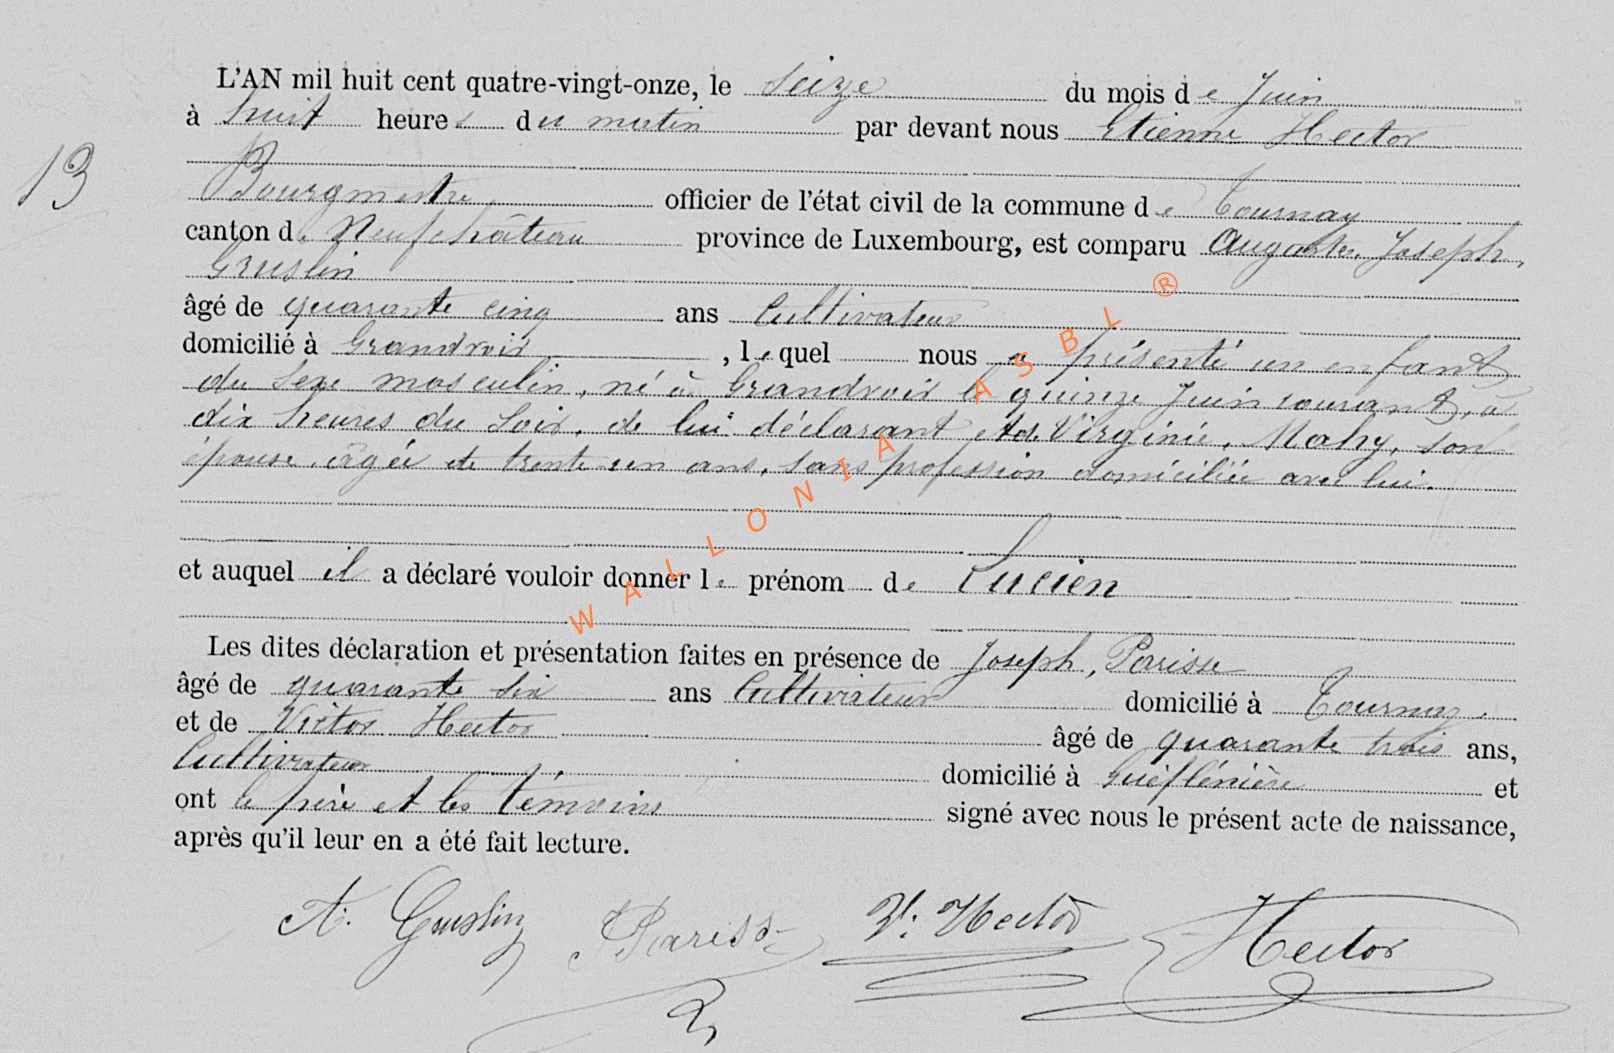 L'AN mil huit cent quatre-vingt-onze, le seize du mois de Juin
à huit heures du matin par devant nous Etienne Hector
13
Bourgmestre officier de l'état civil de la commune de Tournay
canton de Neufchâteau province de Luxembourg, est comparu Auguste Joseph,
Gruslin
âgé de quarante cinq ans Cultivateur
domicilié à Grandvoir, lequel nous a présenté un enfant
du sexe masculin, né à Grandvoir le quinze Juin courant, à
dix heures du soir, de lui déclarant et de Virginie, Mahy, son
épouse, âgée de trente un ans, sans profession domiciliée avec lui.
et auquel il a déclaré vouloir donner le prénom de Lucien
Les dites déclaration et présentation faites en présence de Joseph, Parisse
âgé de quarante six ans Cultivateur domicilié à Tournay
et de Victor Hector âgé de quarante trois ans,
Cultivateur domicilié à et
ont le père et les témoins signé avec nous le présent acte de naissance,
après qu'il leur en a été fait lecture.
A. Gruslin J Parisse V. Hector Hector
WALLONIA ASBL ®